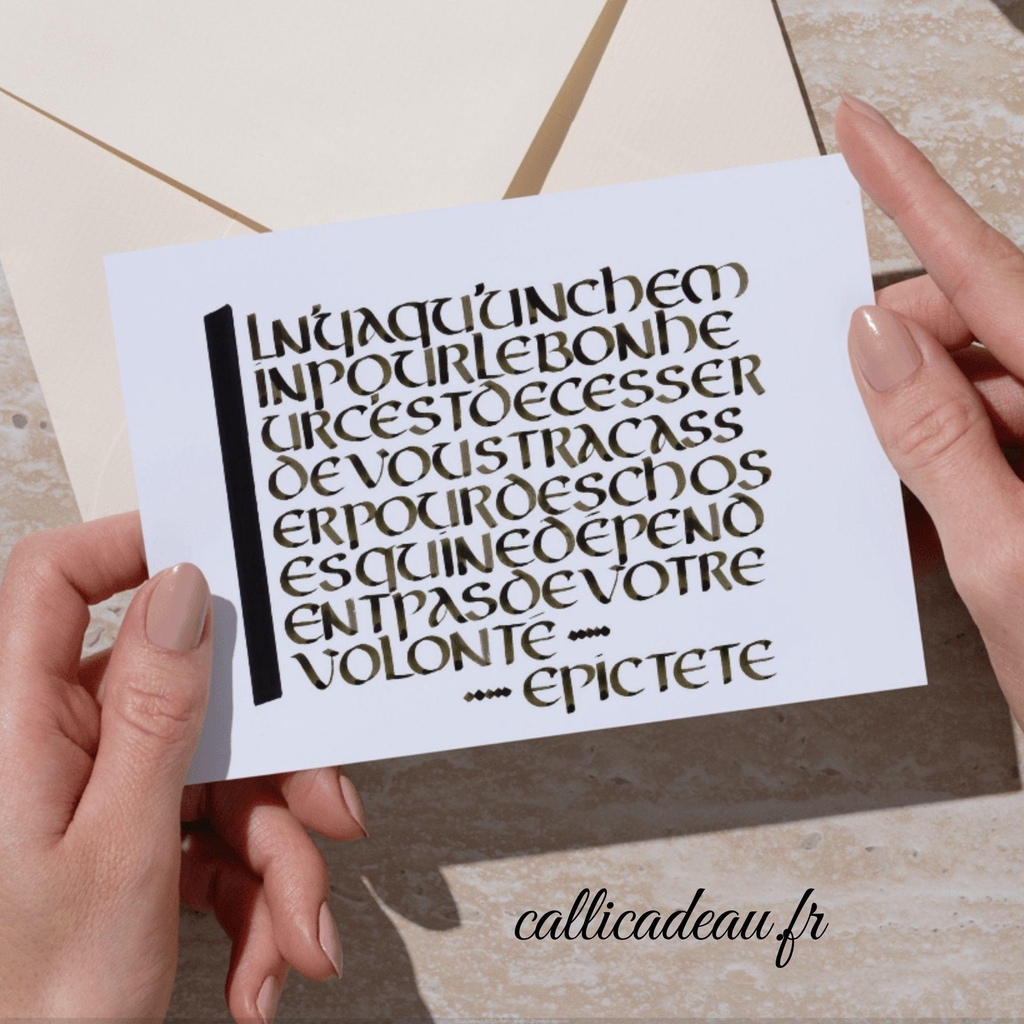 I
LN'YAQU'UNCHEM
INPOURLEBONHE
URC'ESTDECESSER
DEVOUSTRACASS
ERPOURDESCHOS
ESQUINEDÉPEND
ENTPASDEVOTRE
VOLONTÉ
EPICTETE
callicadeau.fr